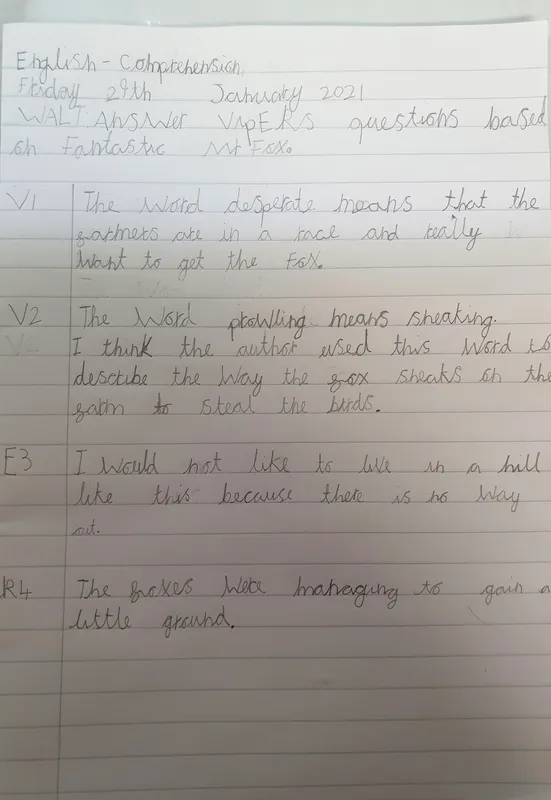 English - Comprehension
Friday 29th January 2021
WALT: Answer VIPERS questions based
on Fantastic Mr Fox.
V1 The word desperate means that the
farmers are in a race and really
want to get the Fox.
V2 The Word prowling means sneaking.
I think the author used this word to
describe the way the fox sneaks on the
farm to steal the birds.
E3 I would not like to live in a hill
like this because there is no way
out.
R4 The foxes were managing to gain a
little ground.